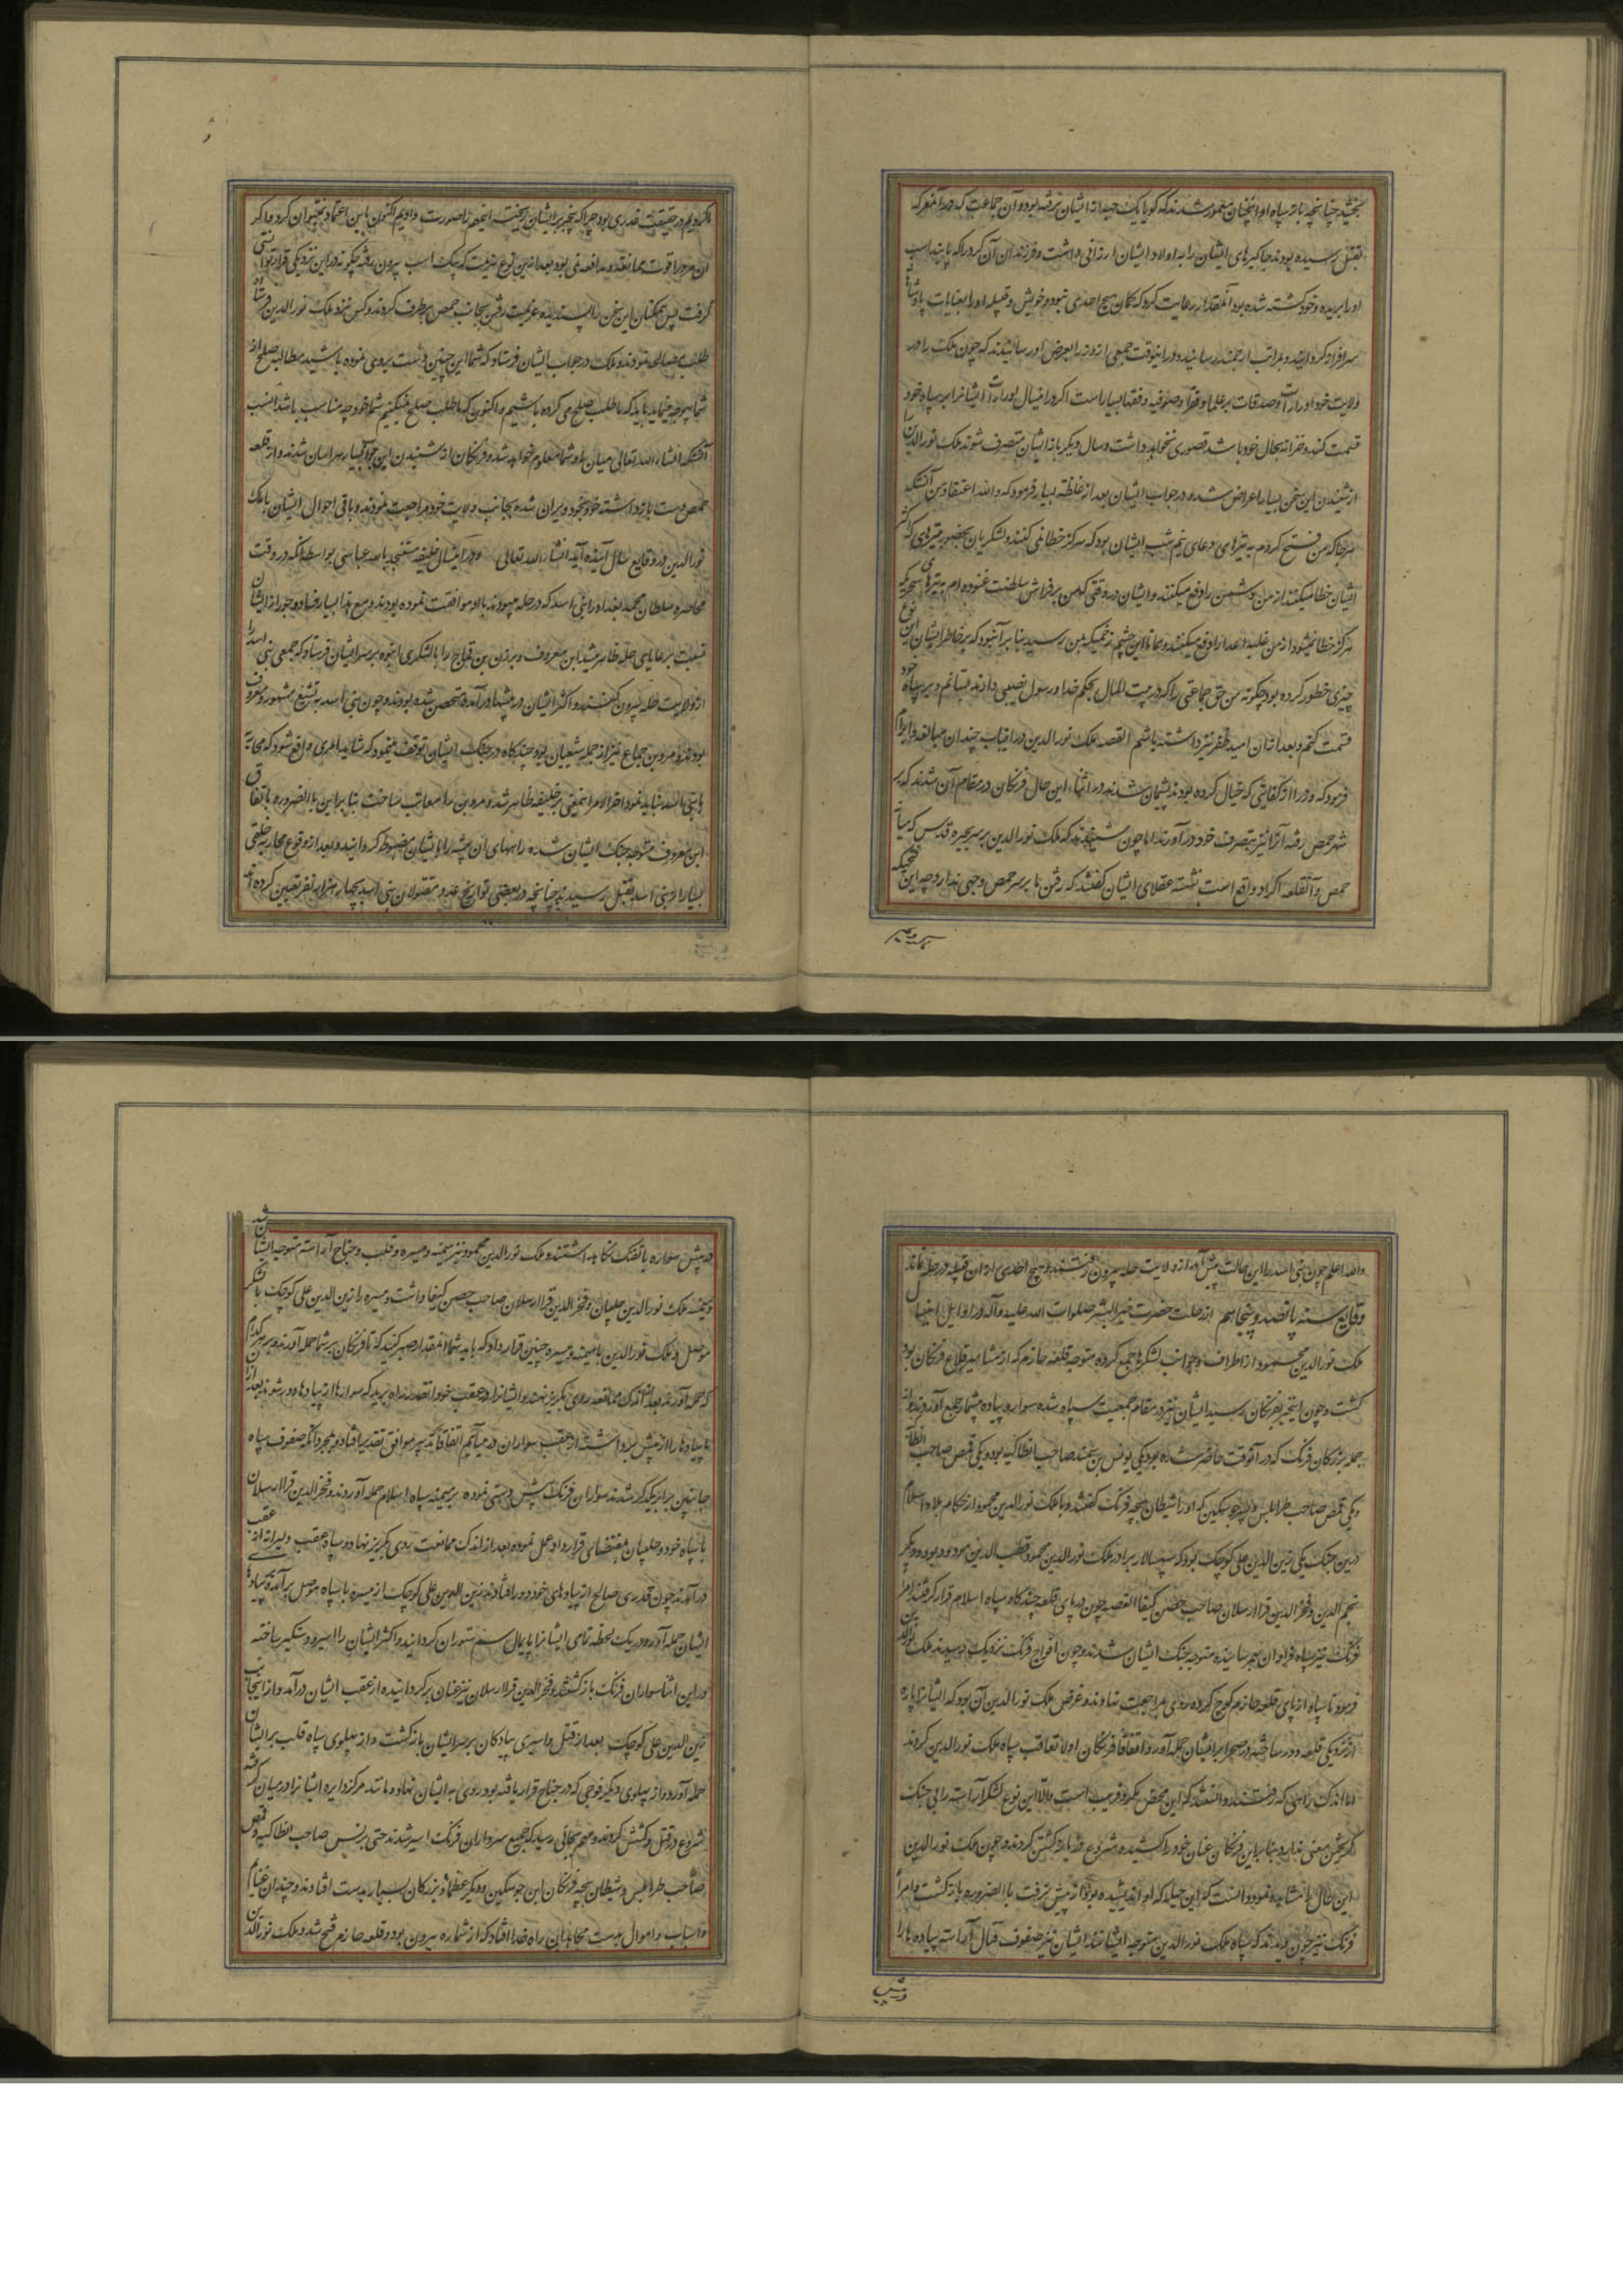 بخشید چنانچه باز سپاه او آنچنان معمور شدند که گویا یک حبه از ایشان نرفته بود و آن جماعت که در آن معرکه
بقتل رسیده بودند جاگیرهای ایشان را به اولاد ایشان ارزانی داشت و فرزندان آن کرد را که پابند اسب
او را بریده و خود کشته شده بود آنمقدار رعایت کرد که کمان هیچ احدی نبود و خویش و قبیله او را بعنایات پادشاهانه
سرافراز گردانید و بمراتب ارجمند رسانید و در اینوقت جمعی از وزرا بعرض او رسانیدند که چون ملک را در
ولایت خود ادرارات و صدقات بر علما و فقرا و صوفیه و فقها بسیار است اگر در اینسال ادرارات ایشانرا بر سپاه خود
قسمت کند و خزانه بحال خود باشد قصوری نخواهد داشت و سال دیگر باز ایشان متصرف شوند ملک نورالدین را
از شنیدن این سخن بسیار اعراض شده و در جواب ایشان بعد از غلظه بسیار فرمود که والله اعتقاد من آنستکه
هر جا که من فتح کردم به تیرهای دعای نیم شب ایشان بود که هرگز خطا نمی کنند و لشکریان بحضور تیرهای که اکثر
ایشان خطا میکنند از من دشمن را دفع میکنند و ایشان در وقتی که من بر فراش سلطنت غنوده ام به تیرهای سحریکه
هرگز خطا نمیشود از من غلبه اعدا را دفع میکنند و همانا این چشم زخمیکه بمن رسید بنا بر آنبود که بر خاطر ایشان این نوع
چیزی خطور کرده بود چگونه من حق جماعتی را که در بیت المال بحکم خدا و رسول نصیبی دارند بستانم و بر سپاه خود
قسمت کنم و بعد از آن امید ظفر نیز داشته باشم القصه ملک نورالدین در اینباب چندان مبالغه و ابرام
فرمود که وزرا از کفایتی که خیال کرده بودند پشیمان شدند در اثنای این حال فرنگان در مقام آن شدند که بر
شهر حمص رفته آنرا نیز بتصرف خود در آورند اما چون شنیدند که ملک نورالدین بر سر بحیره قدس که میانه
حمص و آنقلعه اکراد واقع است نشسته عقلای ایشان گفتند که رفتن ما بر سر حمص وجهی ندارد چه این حمله که
ما کردیم در حقیقت غدری بود چرا که بیخبر بر ایشان ریخته اینهمه را صورت دادیم اکنون باین اعتماد نمیتوان کرد و اگر
آن مرد را قوت ممانعه و مدافعه نمی بود بعد از این نوع هزیمت که بیک اسب بیرون رفته چگونه در این نزدیکی قرار توانستی
گرفت پس همگنان این سخن را پسندیده عزیمت رفتن بجانب حمص برطرف کردند و کس نزد ملک نورالدین فرستاده
طلب مصالحه نمودند و ملک در جواب ایشان فرستاد که شما این چنین دست بردی نموده باشید مطالبه صلح از
شما بیوجه مینماید باید که ما طلب صلح می کرده باشیم و اکنون که ما طلب صلح نمیکنیم شما را خود چه مناسب باشد انسب
آنستکه انشاءالله تعالی میان ما و شما معلوم خواهد شد و فرنگان از شنیدن این جواب بسیار هراسان شدند و از قلعه
حمص دست باز داشته خود بخود ویران شده بجانب ولایت خود مراجعت نمودند و باقی احوال ایشان با ملک
نورالدین در وقایع سال آینده آید انشاءالله تعالی و در اینسال خلیفه مستنجد بالله عباسی بواسطه آنکه در وقت
محاصره سلطان محمد بغداد را بنی اسد که در حله میبودند با او موافقت نموده بودند و مع هذا بسیار فساد و جور از ایشان
نسبت برعایای حله ظاهر میشد ابن معروف و یزدن بن قماج را با لشکری انبوه بر سر ایشان فرستاد که جمعی بنی اسد را
از ولایت حله بیرون کنند و اکثر ایشان در بیشها درآمده متحصن شده بودند و چون بنی اسد به تشیع مشهور و معروف
بودند و مردین جماع نیز از جمله شیعیان بود چندگاه در جنگ ایشان توقف مینمود که شاید امری واقع شود که محاربه
با بنی اسد نباید نمود و آخر الامر اینمعنی بر خلیفه ظاهر شد و مردین را معاتب ساخت بنا بر این بالضروره باتفاق
ابن معروف متوجه جنگ ایشان شده راههای آن بیشه را بر ایشان مضبوط گردانید و بعد از وقوع محاربه خلقی
بسیار از بنی اسد بقتل رسیدند چنانچه در بعضی تواریخ عدد مقتولان بنی اسد چهار هزار نفر تعیین کرده اند
والله اعلم چون بنی اسد را این حالت پیش آمد از ولایت حله بیرون رفتند و هیچ احدی از آن قبیله در حله نماند
وقایع سنه پانصد و پنجاه و نهم از رحلت حضرت خیر البشر صلوات الله علیه و آله در اوایل اینسال
ملک نورالدین محمود از اطراف و جوانب لشکرها جمع کرده متوجه قلعه حازم که از مشاهیر قلاع فرنگان بود
گشت و چون اینخبر بفرنگان رسید ایشان نیز در مقام جمعیت سپاه شده سوار و پیاده بیشمار جمع آوردند و از
جمله بزرگان فرنگ که در آنوقت حاضر شده بود یکی یونس بن بیمند صاحب انطاکیه بود و یکی قمص صاحب انطاکیه
و یکی قمص صاحب طرابلس و پسر جوسکین که او را شیطان بچه فرنگ گفتندی و با ملک نورالدین محمود از حکام بلاد اسلام
درین جنگ یکی زین الدین علی کوچک بود که سپهسالار برادر ملک نورالدین محمود قطب الدین مودود بود و دیگر
نجم الدین و فخر الدین قرا ارسلان صاحب حصن کیفا القصه چون در پای قلعه چندگاه سپاه اسلام قرار گرفتند امرا
فرنگ نیز سپاه فراوان بهم رسانیده متوجه جنگ ایشان شدند و چون افواج فرنگ نزدیک رسیدند ملک نورالدین
فرمود تا سپاه از پای قلعه حازم کوچ کرده روی بمراجعت نهادند و غرض ملک نورالدین آن بود که ایشانرا پاره
از نزدیکی قلعه دور ساخته در صحرا بر ایشان حمله آورد و اتفاقا فرنگان اولا تعاقب سپاه ملک نورالدین کردند
اما اندک راهی که رفتند دانستند که این محض مکر و فریب است و الا این نوع لشکر آراسته را بی جنگ
گریختن معنی ندارد بنا بر این فرنگان عنان خود را کشیدند و شروع در باز گشتن کردند و چون ملک نورالدین
این حال را مشاهده نمود دانست که این حیله که او اندیشیده بود از پیش نرفت بالضروره بازگشت و امرا
فرنگ نیز چون دیدند که سپاه ملک نورالدین متوجه ایشانند ایشان نیز صفوف قتال آراسته پیاده ها را
در پیش سواره با تفنگ نگاه داشتند و ملک نورالدین محمود نیز میمنه و میسره و قلب و جناح آراسته متوجه ایشان شد
و میمنه ملک نورالدین حلبیان و فخرالدین قرا ارسلان صاحب حصن کیفا داشت و میسره را زین الدین علی کوچک با لشکر
موصل و ملک نورالدین با میمنه و میسره چنین قرار داد که باید شما آنمقدار صبر کنید که تا فرنگان بر شما حمله آورند و بر هر کدام
که حمله آورند بعد از اندک ممانعه روی بگریز نهند و ایشانرا در عقب خود آنقدر راه ببرید که سوارها از پیادها دور شوند بعد از آن
ما پیادها را از پیش برداشته از عقب سواران در می آئیم اتفاقا تدبیر موافق تقدیر افتاد و بمجرد آنکه صفوف سپاه
جانبین برابر یکدیگر شدند سواران فرنگ پیش دستی نموده بر میمنه سپاه اسلام حمله آوردند و فخرالدین قرا ارسلان
با سپاه خود و حلبیان بمقتضای قرارداد عمل نموده بعد از اندک ممانعت روی بگریز نهاد و سپاه عقب دلیرانه از عقب
در آمدند چون قدری صالح از پیادهای خود دور افتادند زین الدین علی کوچک از میسره با سپاه موصل برآمده بر پیادها
ایشان حمله آورد و در یک لحظه تمامی ایشانرا پایمال سم ستوران گردانید و اکثر ایشان را اسیر و دستگیر ساخته
در این اثنا سواران فرنگ بازگشتند و فخرالدین قرا ارسلان نیز عنان برگردانیده از عقب ایشان درآمد و از اینجانب
زین الدین علی کوچک بعد از قتل و اسیری پیادگان بر سر ایشان بازگشت و از پهلوی سپاه قلب بر ایشان
حمله آورد و از پهلوی دیگر فوجی که در جناح قرار یافته بود روی به ایشان نهاد و مانند مرکز دایره ایشانرا در میان گرفته
شروع در قتل و کشش کردند و مهم بجائی رسید که جمیع سرداران فرنگ اسیر شدند حتی برنس صاحب انطاکیه و قمص
صاحب طرابلس و شیطان بچه فرنگان ابن جوسکین و دیگر عظما و بزرگان بسیار بدست افتادند و چندان غنایم
و اسباب و اموال بدست مجاهدان راه خدا افتاد که از شماره بیرون بود و قلعه حازم فتح شد و ملک نورالدین